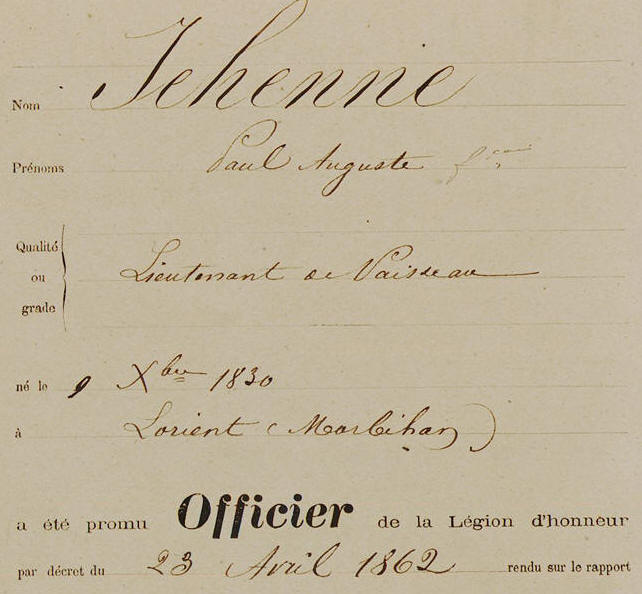 Nom Jehenne
Prénoms Paul Auguste
Qualité
ou Lieutenant de Vaisseau
grade
né le 9 Xbre 1830
à Lorient (Morbihan)
a été promu Officier de la Légion d'honneur
par décret du 23 Avril 1862 rendu sur le rapport